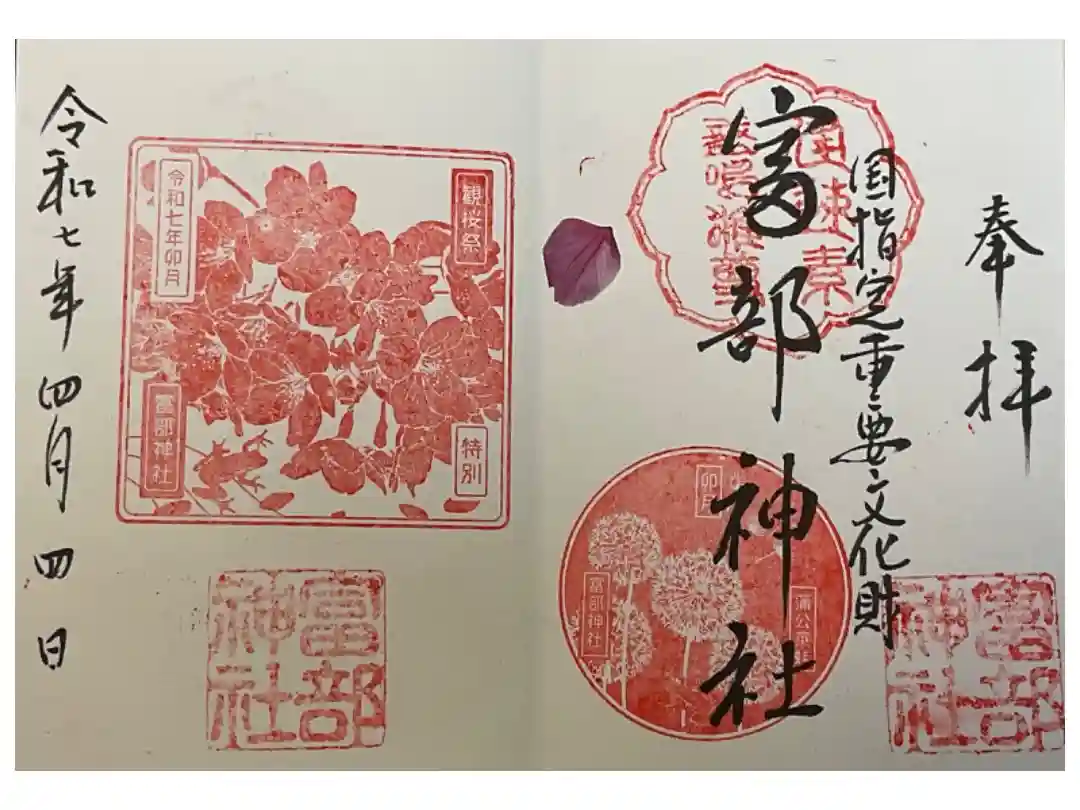 奉拝
国指定重要文化財
富部神社
卯月
富部神社
富部神社
観桜祭
特別
令和七年卯月
富部神社
富部神社
令和七年四月四日